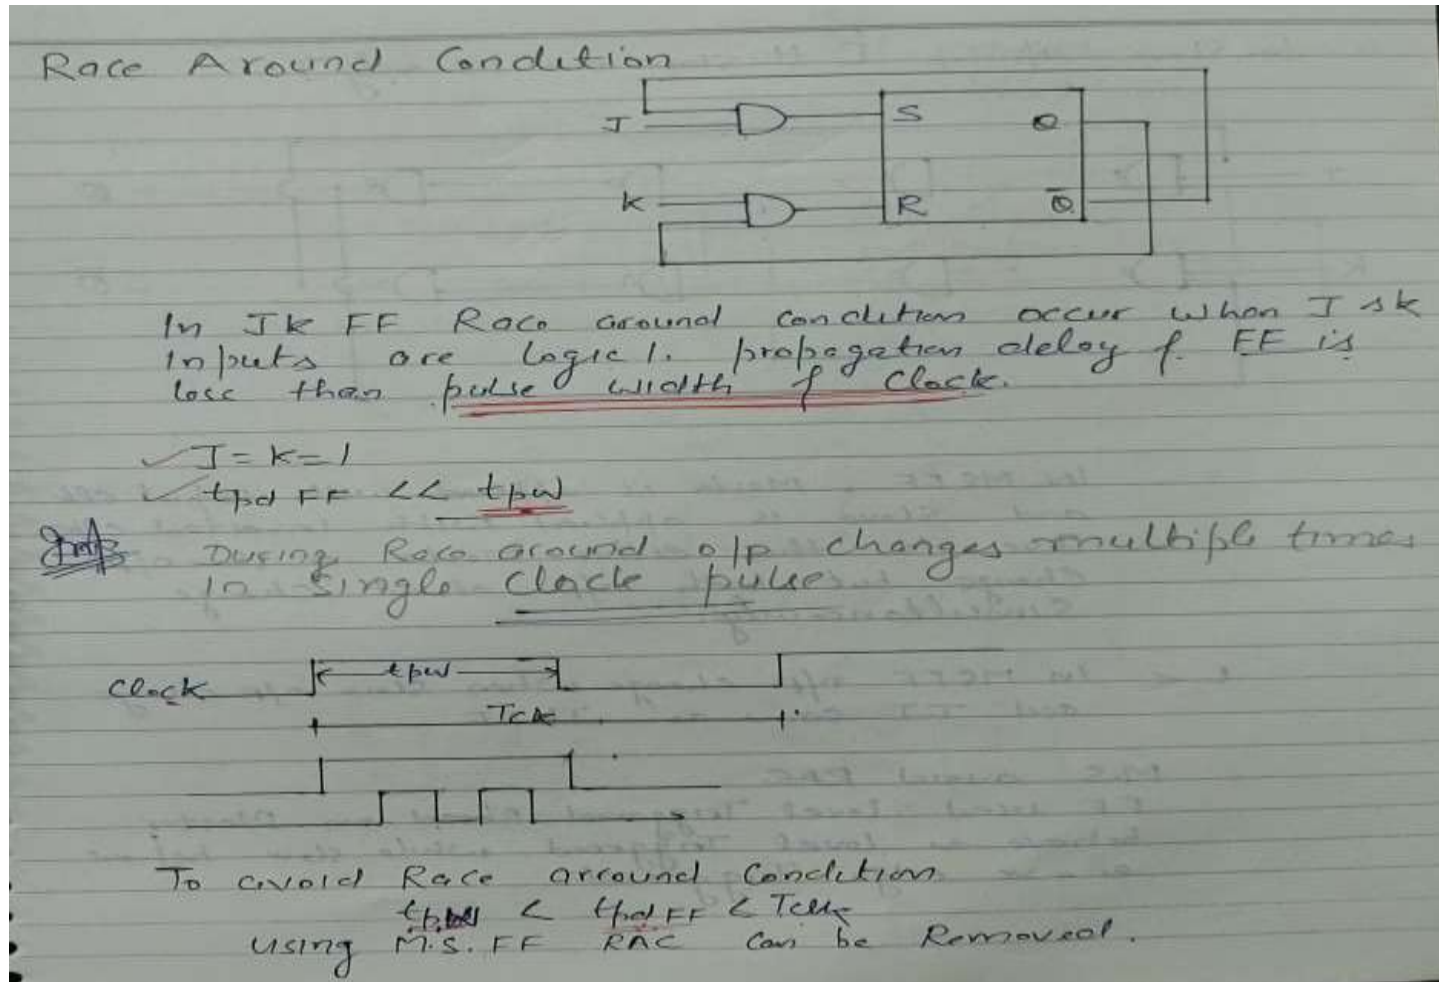 Race Around Condition
J S Q
K R Q̅
In JK FF Race around condition occur when J & K
Inputs are logic 1. propagation delay of FF is
less than pulse width of Clock.
J = K = 1
tpd FF << tpw
Imp During Race around o/p changes multiple times
In single clock pulse
Clock tpw
Tclk
To avoid Race arround Condition
tpw < tpd FF < Tclk
Using M.S. FF RAC Can be Removed.